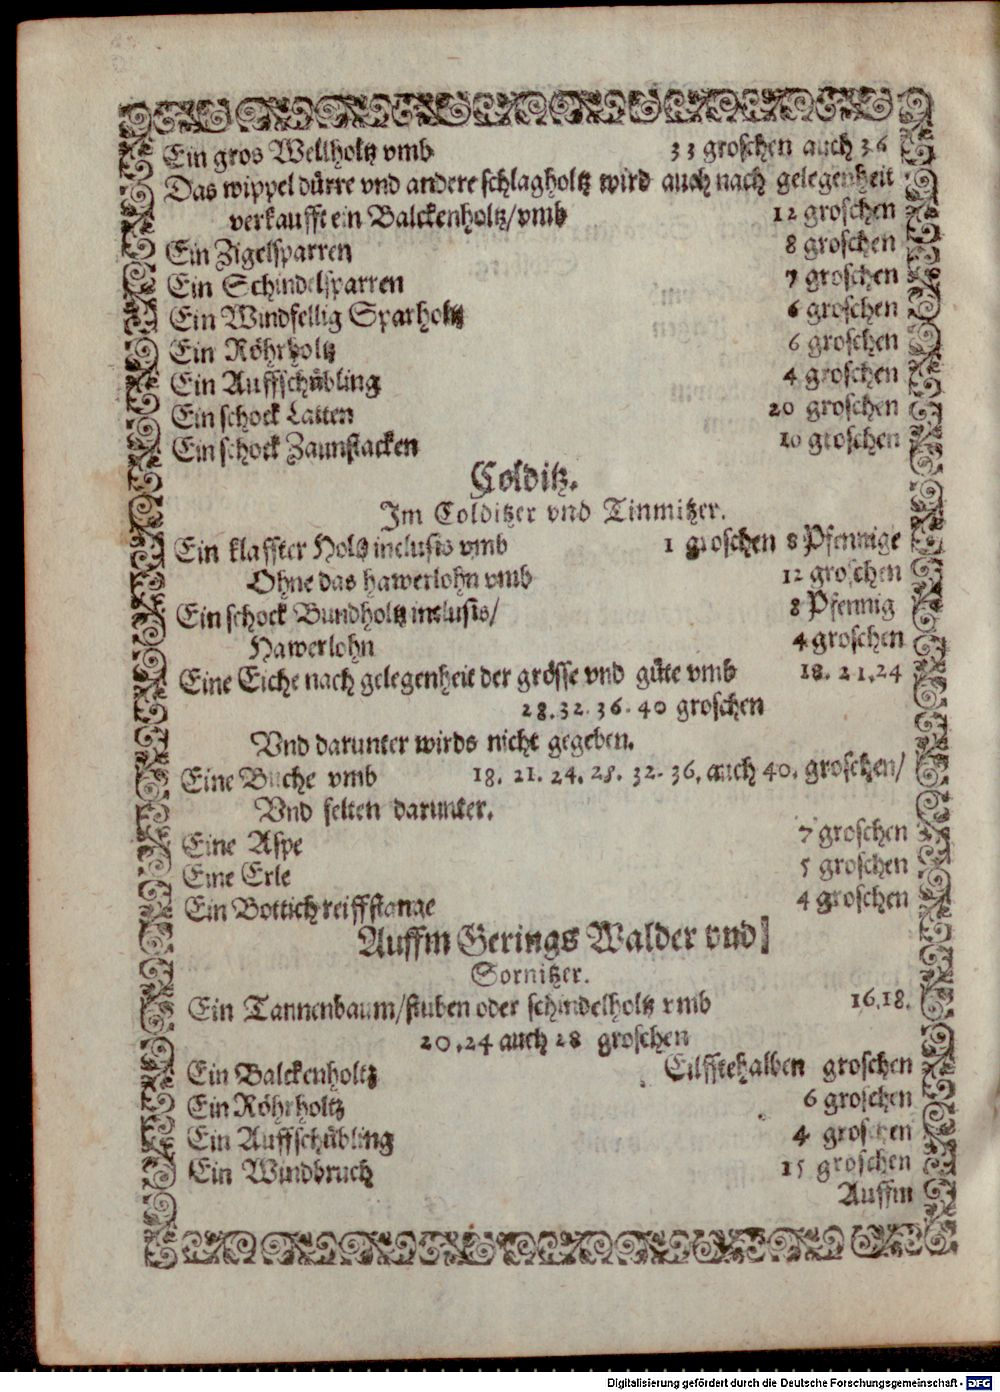 Ein gros Wellholtz vmb 33 groschen auch 36
Das wippel dürre vnd andere schlagholtz wird auch nach gelegenheit
verkaufft ein Balckenholtz/vmb 12 groschen
Ein Zigelsparren 8 groschen
Ein Schindelsparren 7 groschen
Ein Windfellig Sparholtz 6 groschen
Ein Röhrholtz 6 groschen
Ein Auffschübling 4 groschen
Ein schock Latten 20 groschen
Ein schock Zaunstacken 10 groschen
Colditz.
Im Colditzer vnd Tinmitzer.
Ein klaffter Holtz inclusis vmb 1 groschen 8 Pfennige
Ohne das hawerlohn vmb 12 groschen
Ein schock Bundholtz inclusis/ 8 Pfennig
Hawerlohn 4 groschen
Eine Eiche nach gelegenheit der grösse vnd güte vmb 18. 21.24
28.32.36.40 groschen
Vnd darunter wirds nicht gegeben.
Eine Buche vmb 18. 21. 24. 28. 32. 36. auch 40. groschen/
Vnd selten darunter.
Eine Aspe 7 groschen
Eine Erle 5 groschen
Ein Bottich reiffstange 4 groschen
Auffm Gerings Walder vnd
Sornitzer.
Ein Tannenbaum/stuben oder schindelholtz vmb 16.18.
20.24 auch 28 groschen
Ein Balckenholtz Eilfftehalben groschen
Ein Röhrholtz 6 groschen
Ein Auffschübling 4 groschen
Ein Windbruch 15 groschen
Auffm
Digitalisierung gefördert durch die Deutsche Forschungsgemeinschaft - DFG